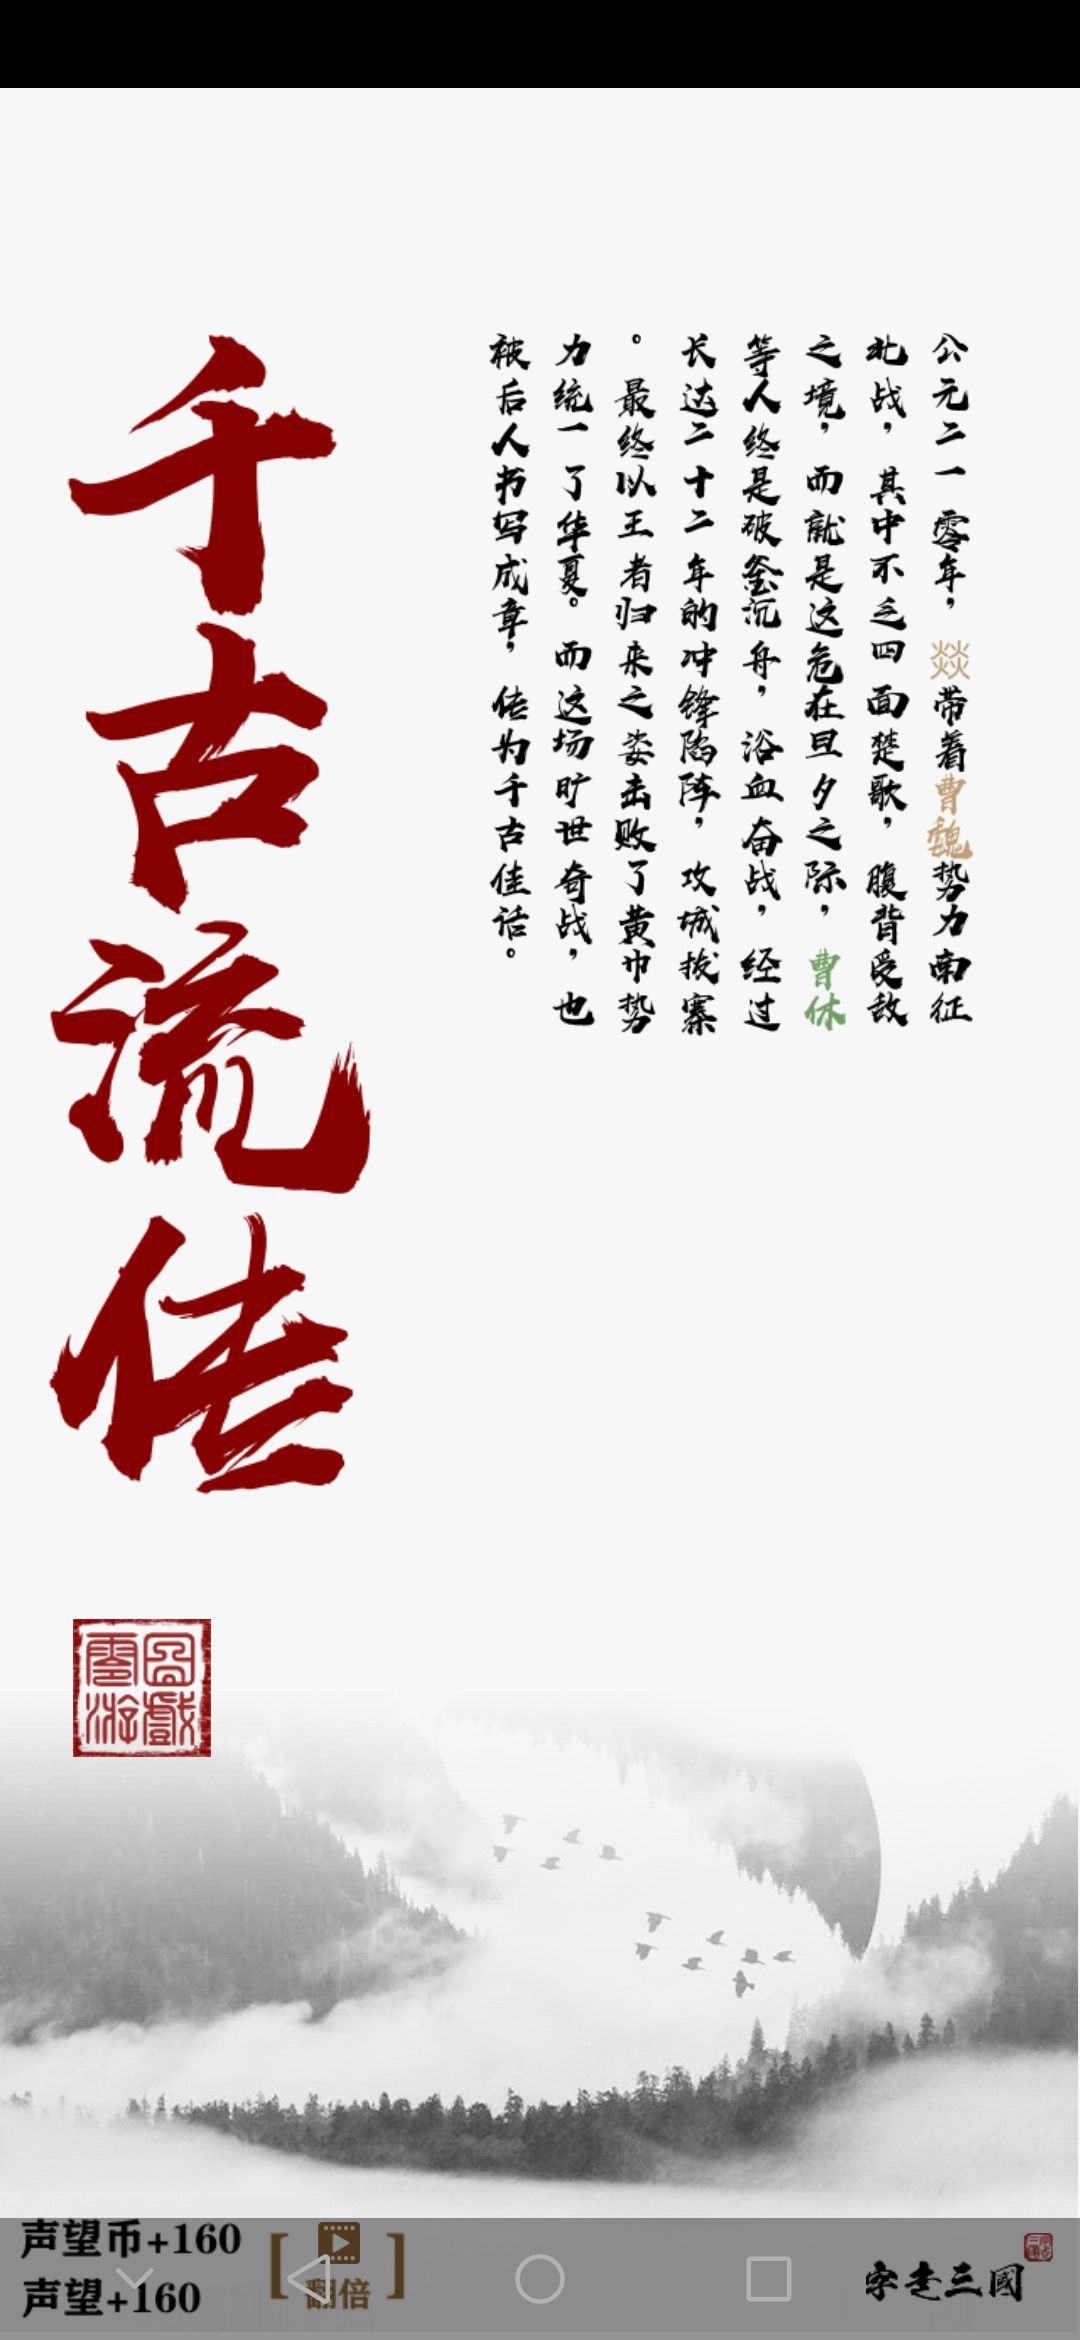 公元二一零年，燚带着曹魏势力南征
北战，其中不乏四面楚歌，腹背受敌
之境，而就是这危在旦夕之际，曹休
等人终是破釜沉舟，浴血奋战，经过
长达二十二年的冲锋陷阵，攻城拔寨
。最终以王者归来之姿击败了黄巾势
力统一了华夏。而这场旷世奇战，也
被后人书写成章，传为千古佳话。
千古流传
圄戲
零游
声望币+160
声望+160
[翻倍]
字走三國